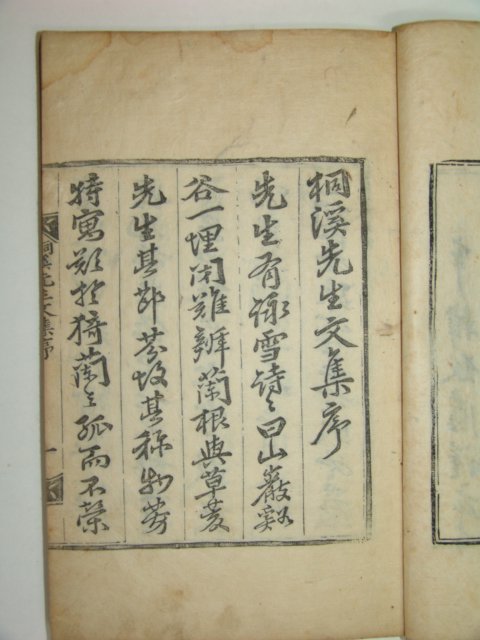 桐溪先生文集序
先生有詠雪詩〻曰山巖谿
谷一埋闭難辨蘭根與草荄
先生其芬故其称物芳
特寓歎於猗蘭〻孤而不榮
桐溪先生文集序 一